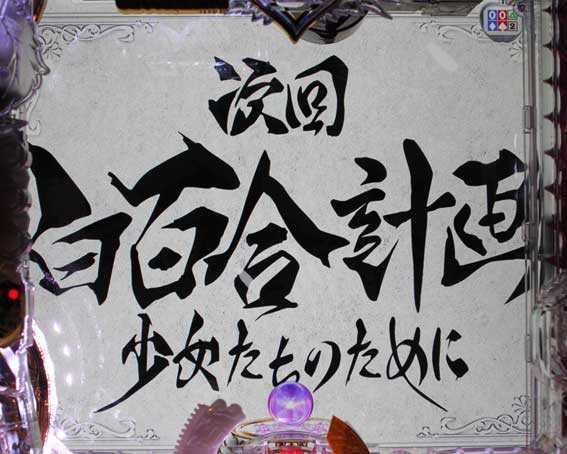 次回
白百合計画
少女たちのために